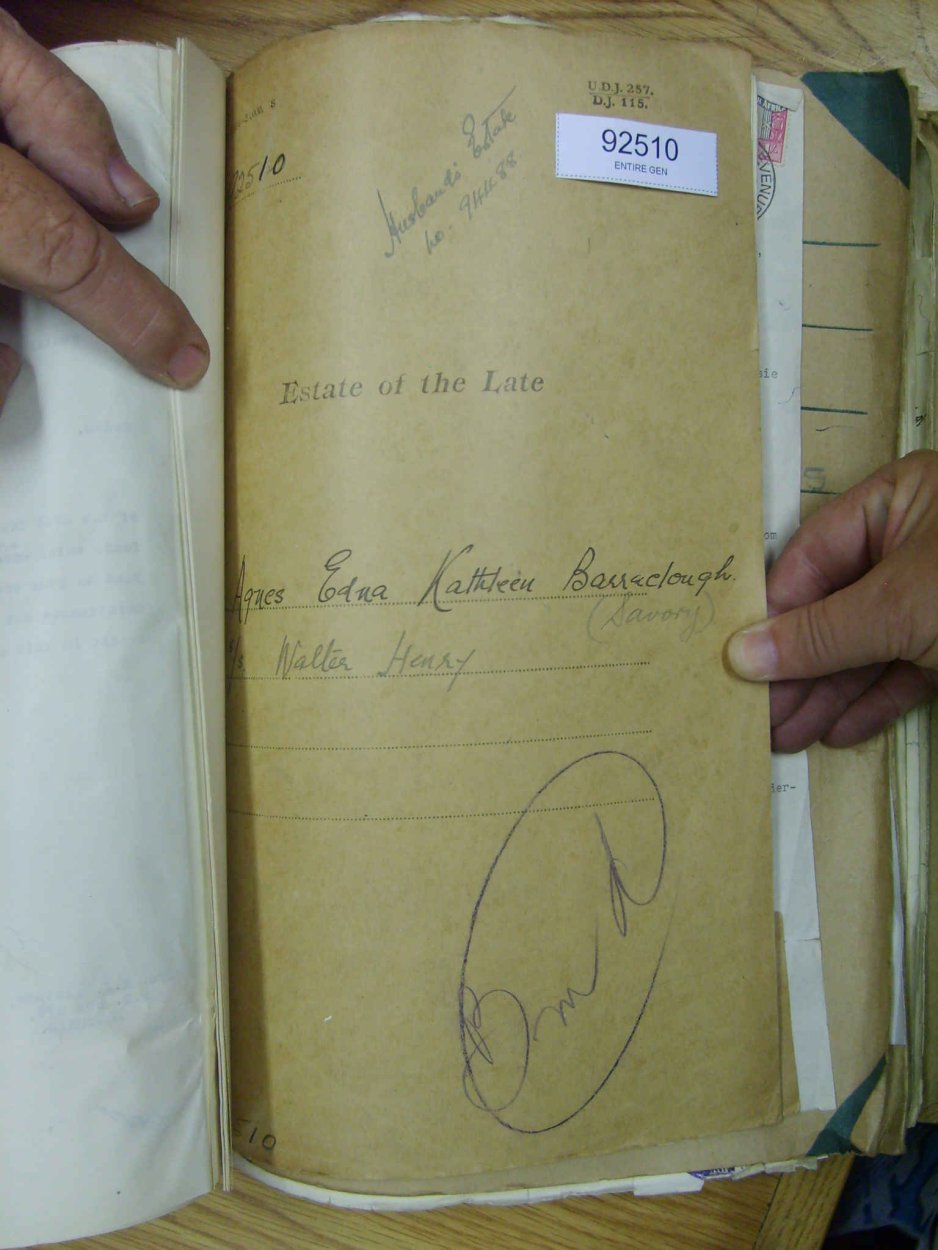 U.D.J. 257.
D.J. 115.
92510
ENTIRE GEN
2510
Husband's Estate
no. 94488.
Estate of the Late
Agnes Edna Kathleen Barraclough.
(Savory)
s/s Walter Henry
510
VENUE
sie
om
ier-